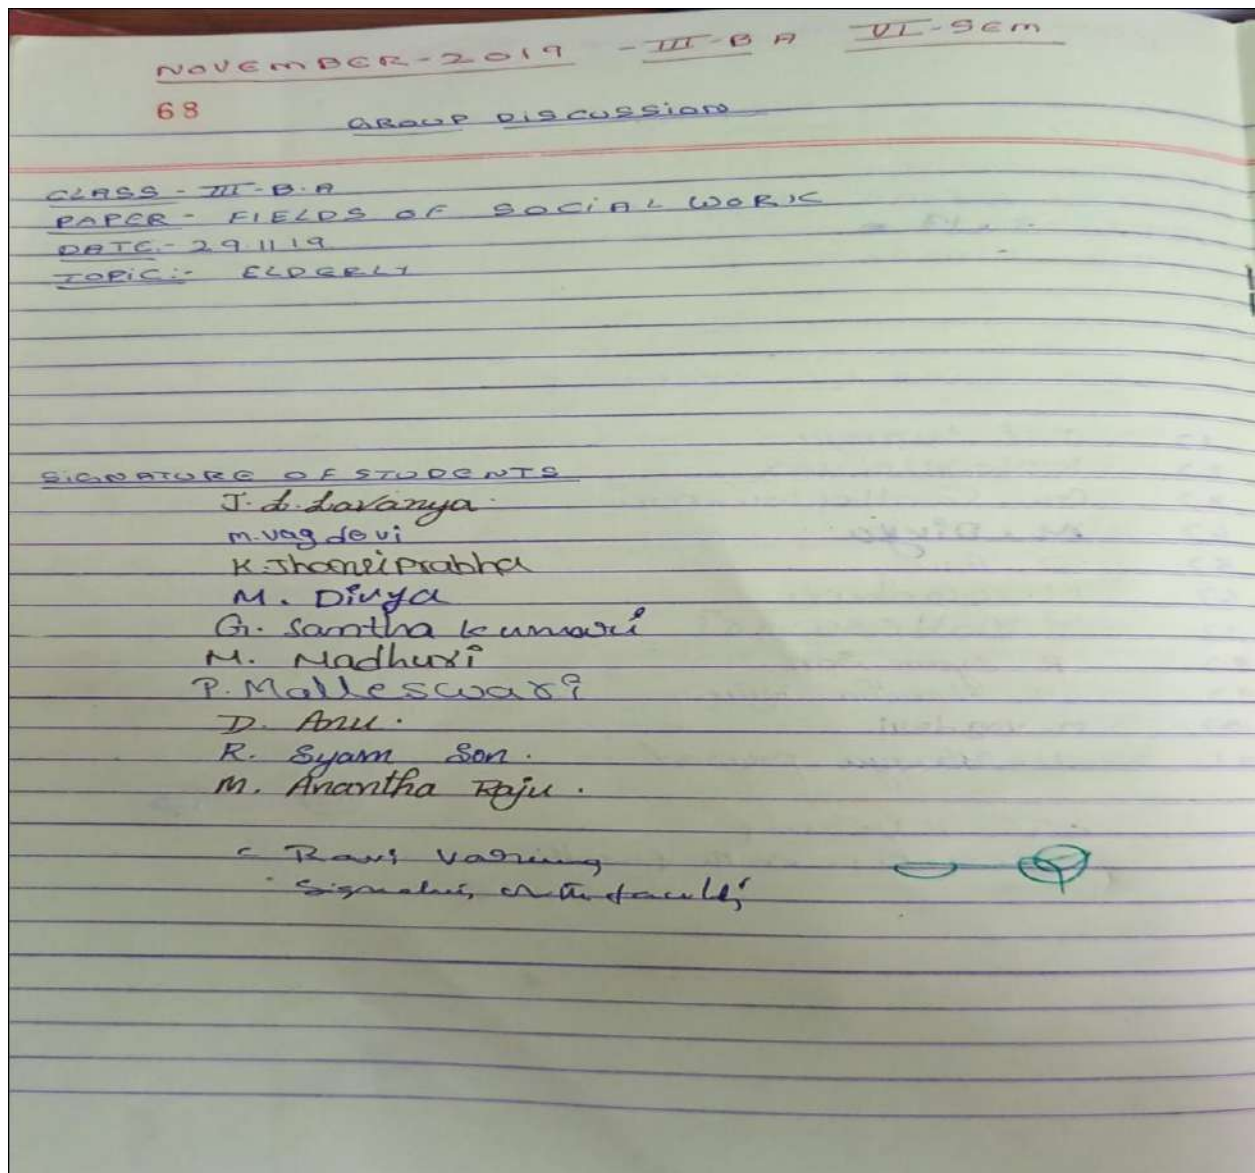 NOVEMBER-2019 - III-B A VI-SEM
68
GROUP DISCUSSION
CLASS - III-B.A
PAPER - FIELDS OF SOCIAL WORK
DATE:- 29.11.19
TOPIC:- ELDERLY
SIGNATURE OF STUDENTS
J. L. Lavanya.
M. Vagdevi
K. Jhansi Prabha
M. Divya
G. Santha Kumari
M. Madhuri
P. Malleswari
D. Anu.
R. Syam Son.
M. Anantha Raju.
Ravi
Signature of the faculty